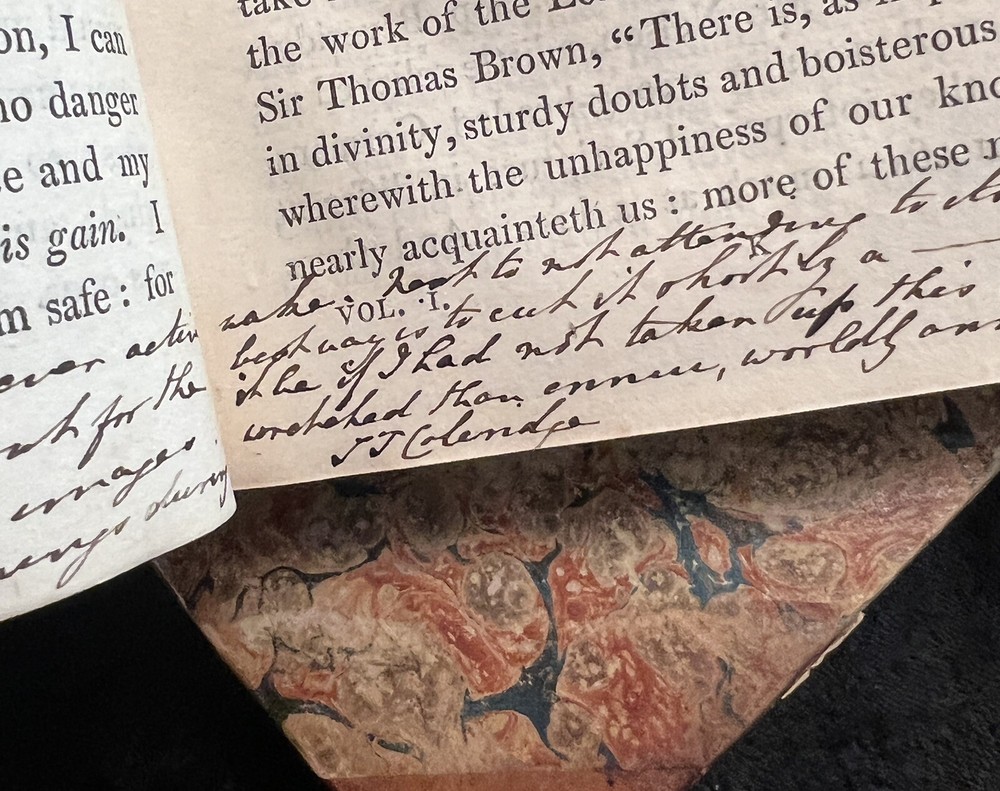 on, I can
no danger
e and my
is gain. I
m safe : for
ever
for the
images
during
take
the work of the
Sir Thomas Brown, “There is, as
in divinity, sturdy doubts and boisterous
wherewith the unhappiness of our kno
nearly acquainteth us : more of these
make. to not attending to
VOL. I.
best way is to cut it short by a
it be if I had not taken up this
wretched than ennui, worldly
JTColeridge